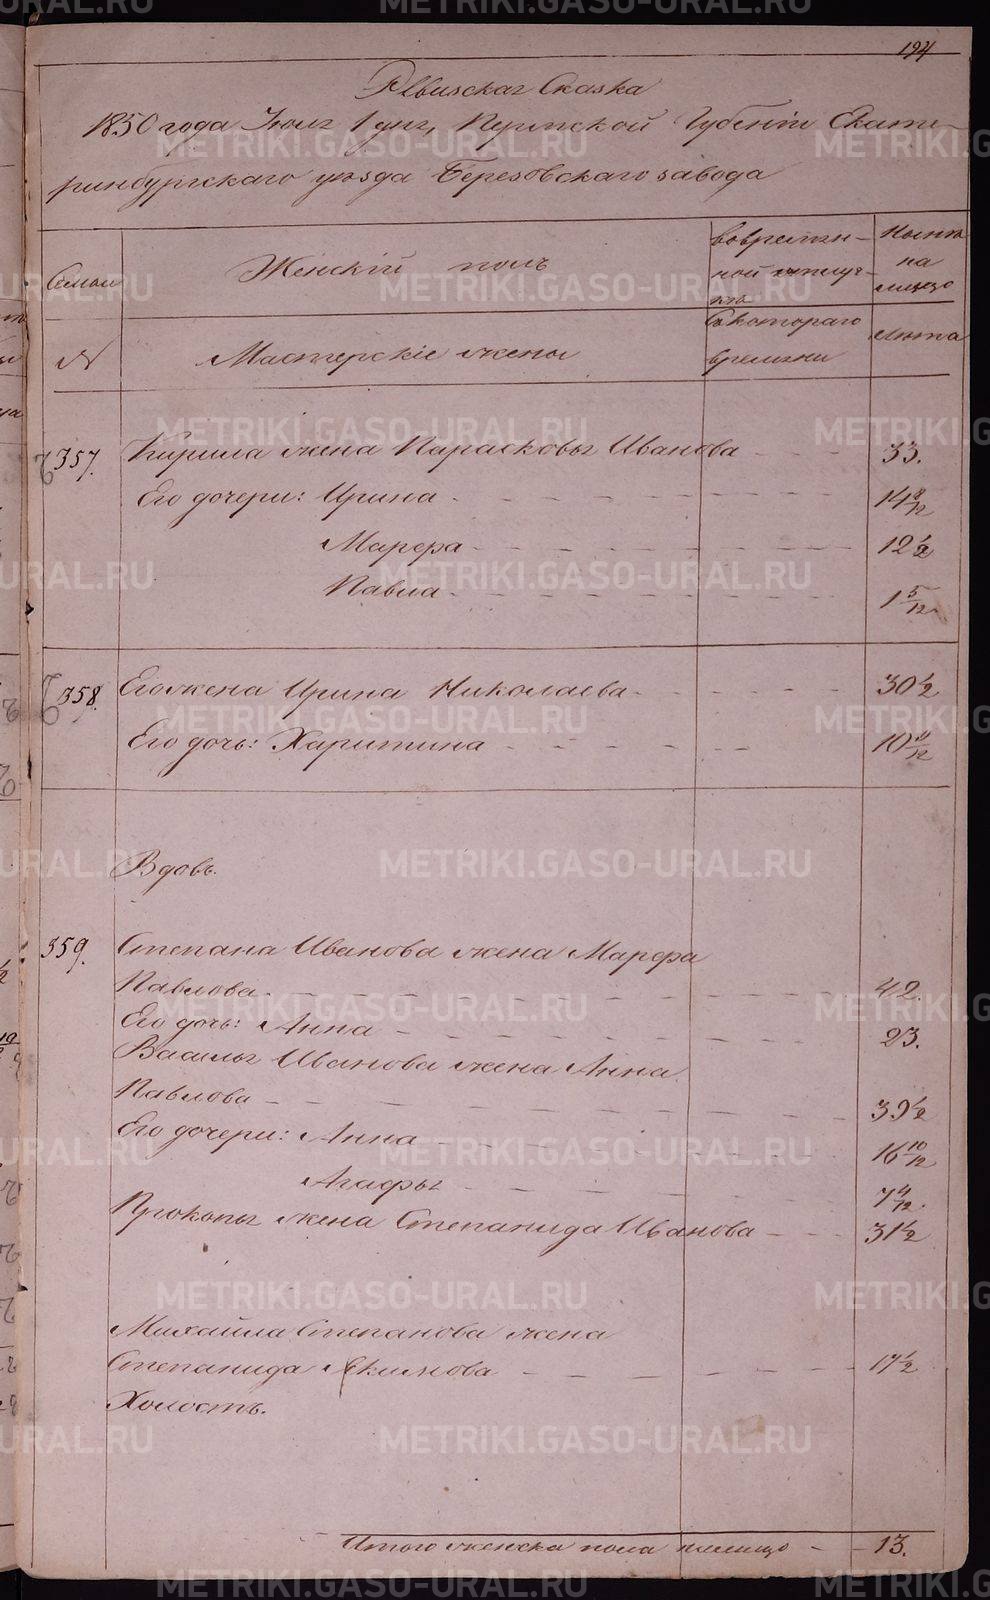 194
Ревизская Сказка
1850 года Июля 1 дня, Пермской Губернiи Екате-
ринбургскаго уѣзда Березовскаго завода
Семьи
Женскiй полъ
вовремян-
ной отлуч-
кѣ
Нынѣ
на
лицо
N
Мастерскiе жены
Съкотораго
времяни
лѣта
357. Кирила жена Парасковья Иванова 33.
Его дочери: Ирина 14 8/12
Марѳа 12 1/2
Павла 1 5/12
358. Егожена Ирина Николаева 30 1/2
Его дочь: Харитина
Вдовъ.
359. Степана Иванова жена Марфа
Павлова 42.
Его дочь: Анна 23.
Василья Иванова жена Анна
Павлова 39 1/2
Его дочери: Анна 16 10/12
Агафья 7 4/12.
Прокопья жена Степанида Иванова 31 1/2
Михаила Степанова жена
Степанида Якимова 17 1/2
Холостъ.
Итого женска пола налицо 13.
METRIKI.GASO-URAL.RU